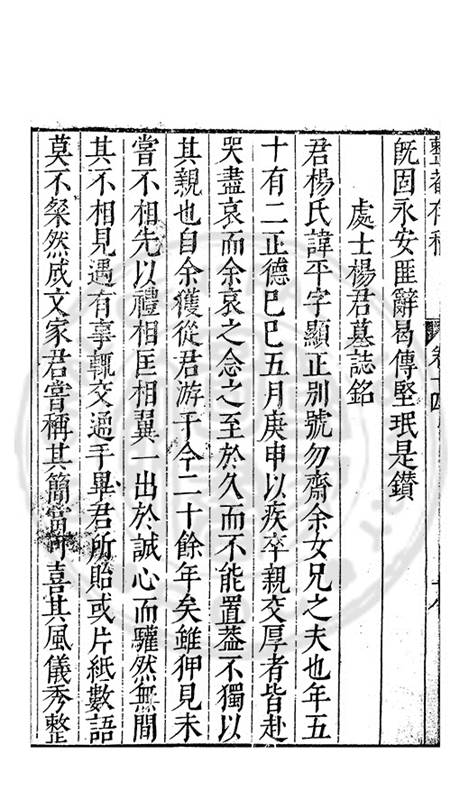 整菴存稿 卷十四
旣固永安匪辭曷傳堅珉是鑚
處士楊君墓誌銘
君楊氏諱平字顯正别號勿齋余女兄之夫也年五
十有二正德巳巳五月庚申以疾卒親交厚者皆赴
哭盡哀而余哀之念之至於久而不能置葢不獨以
其親也自余獲從君游于今二十餘年矣雖狎見未
嘗不相先以禮相匡相翼一出於誠心而驩然無間
其不相見遇有事輒交通手畢君所貽或片紙數語
莫不粲然成文家君嘗稱其簡當可喜其風儀秀整